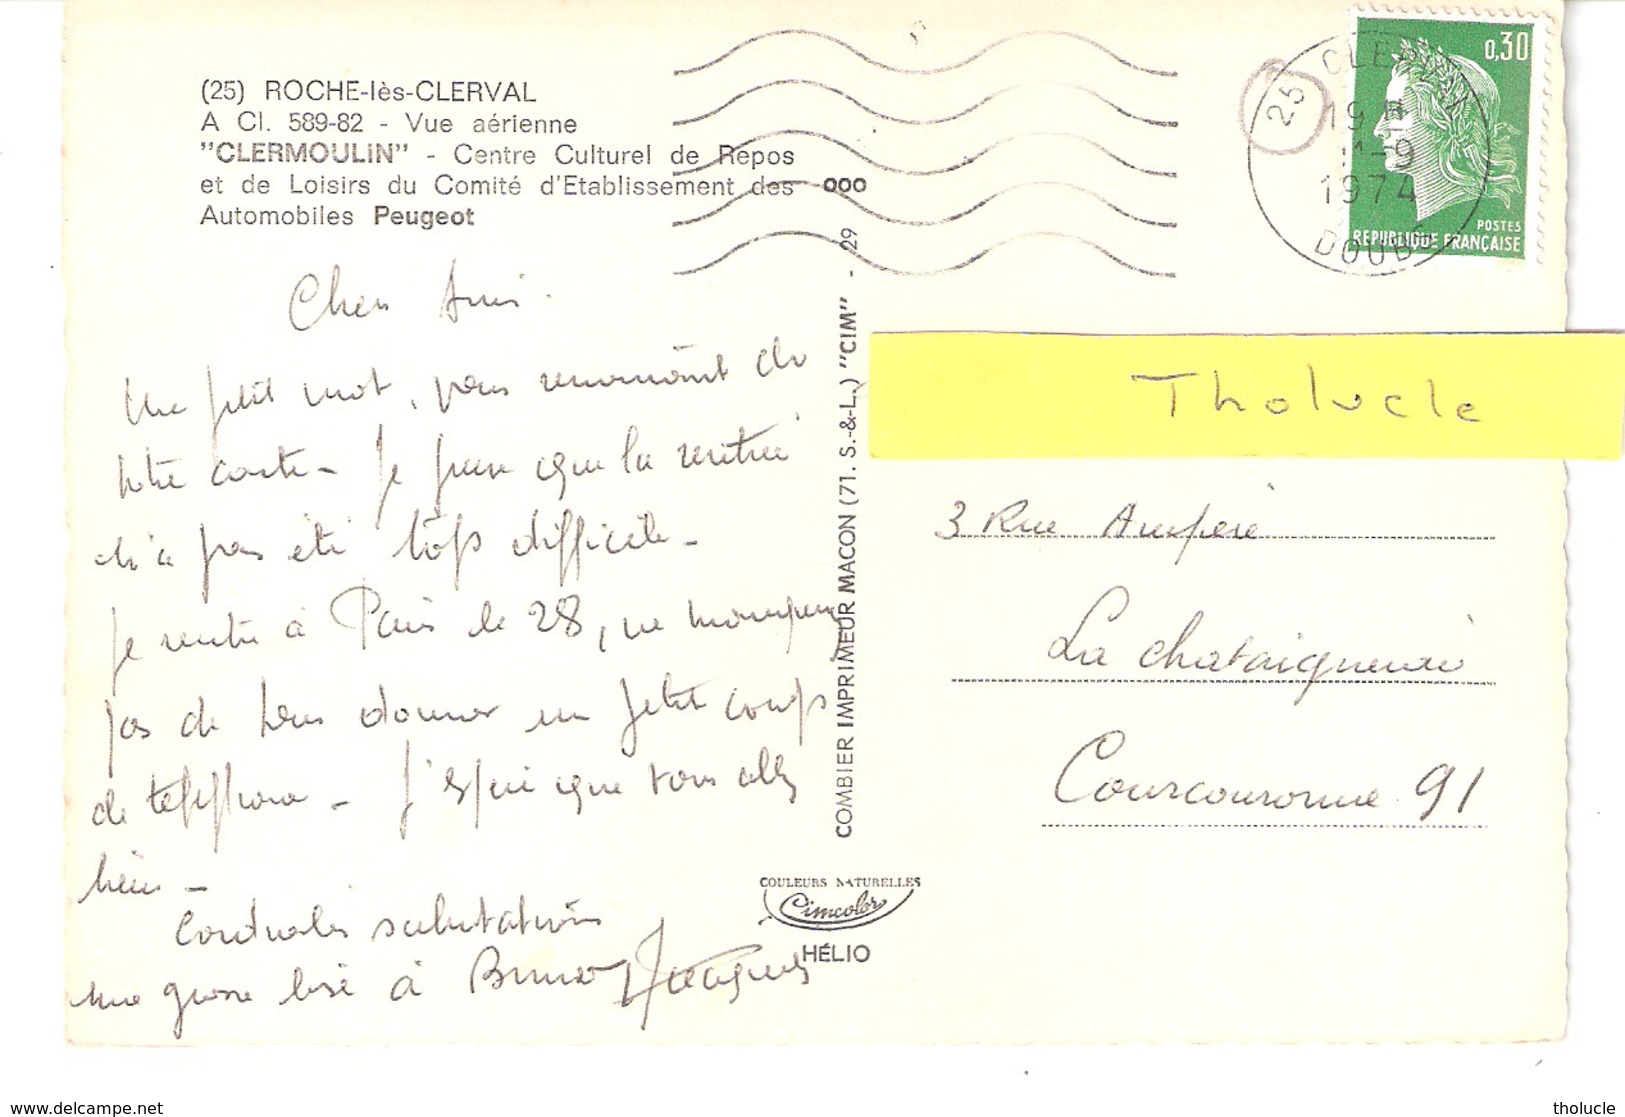 (25) ROCHE-lès-CLERVAL
A Cl. 589-82 - Vue aérienne
"CLERMOULIN" - Centre Culturel de Repos
et de Loisirs du Comité d'Etablissement des
Automobiles Peugeot
ooo
0,30
POSTES
REPUBLIQUE FRANÇAISE
25 CLERVAL
19 H
11-9
1974
DOUBS
Chers Amis.
Une petit mot, vous remerciant de
votre carte - Je pense que la rentrée
n'a pas été trop difficile -
Je rentre à Paris le 28, ne manquerai
pas de vous donner un petit coup
de téléphone - J'espère que vous allez
bien -
Cordiales salutations
une grosse bise à Bruno Jacques
COMBIER IMPRIMEUR MACON (71. S.-&-L.) "CIM" - 29
COULEURS NATURELLES
Cimcolor
HÉLIO
Tholucle
3 Rue Ampère
La chataigneraie
Courcouronne 91
delcampe.net
tholucle